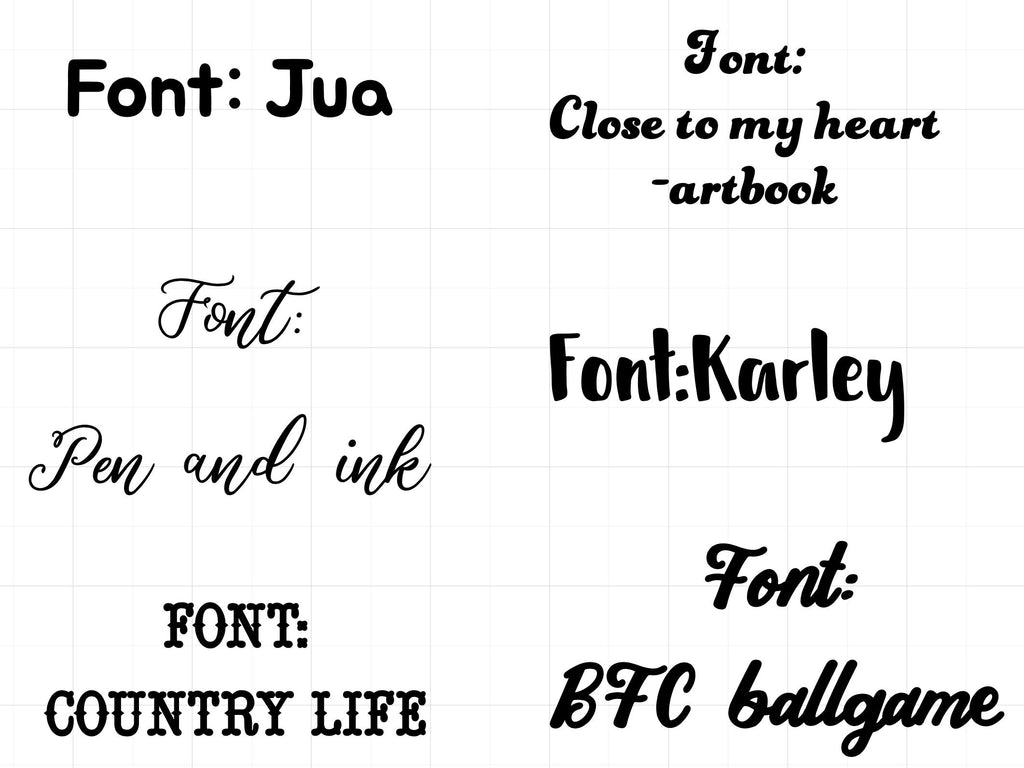 Font: Jua
Font:
Close to my heart
-artbook
Font:
Pen and ink
Font:Karley
FONT:
COUNTRY LIFE
Font:
BFC ballgame